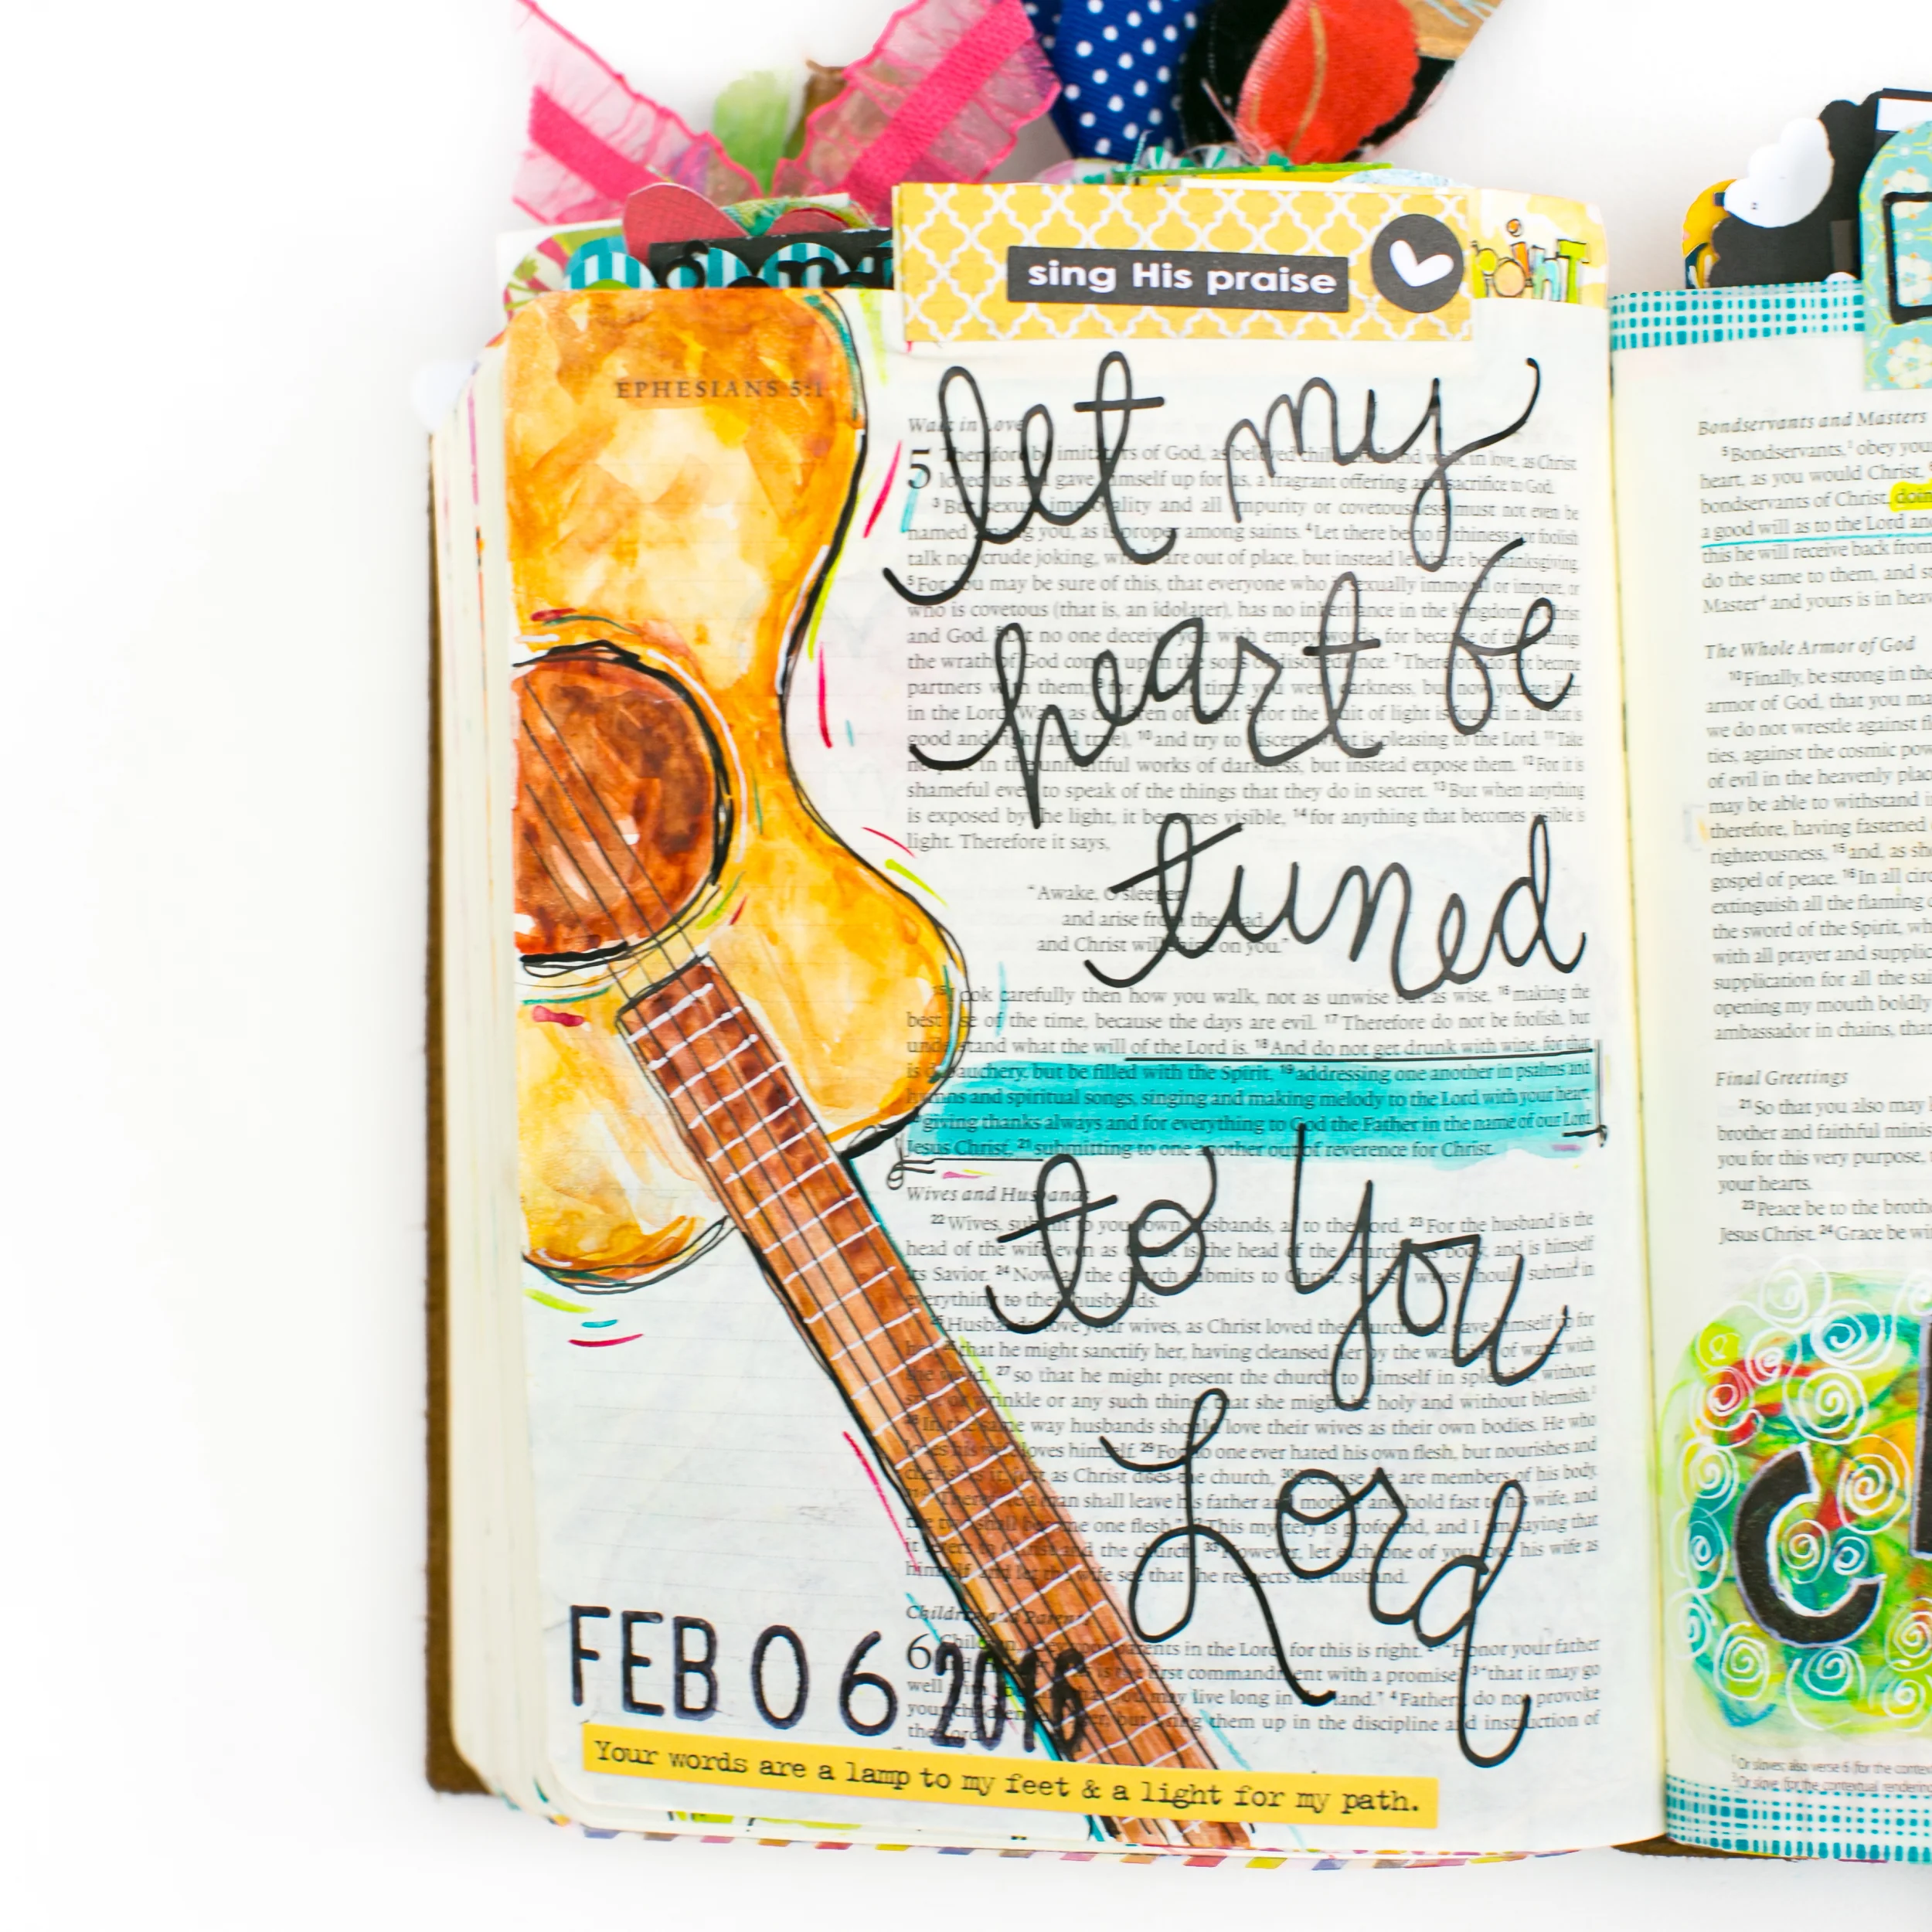 sing His praise
EPHESIANS 5:1
let my
heart be
tuned
to You
Lord
Walk in Love
5 Therefore be imitators of God, as beloved children. And walk in love, as Christ
loved us and gave himself up for us, a fragrant offering and sacrifice to God.
3 But sexual immorality and all impurity or covetousness must not even be
named among you, as is proper among saints. 4 Let there be no filthiness nor foolish
talk nor crude joking, which are out of place, but instead let there be thanksgiving.
5 For you may be sure of this, that everyone who is sexually immoral or impure, or
who is covetous (that is, an idolater), has no inheritance in the kingdom of Christ
and God. 6 Let no one deceive you with empty words, for because of these things
the wrath of God comes upon the sons of disobedience. 7 Therefore do not become
partners with them; 8 for at one time you were darkness, but now you are light
in the Lord. Walk as children of light 9 (for the fruit of light is found in all that is
good and right and true), 10 and try to discern what is pleasing to the Lord. 11 Take
no part in the unfruitful works of darkness, but instead expose them. 12 For it is
shameful even to speak of the things that they do in secret. 13 But when anything
is exposed by the light, it becomes visible, 14 for anything that becomes visible is
light. Therefore it says,
“Awake, O sleeper,
and arise from the dead,
and Christ will shine on you.”
15 Look carefully then how you walk, not as unwise but as wise, 16 making the
best use of the time, because the days are evil. 17 Therefore do not be foolish, but
understand what the will of the Lord is. 18 And do not get drunk with wine, for that
is debauchery, but be filled with the Spirit, 19 addressing one another in psalms and
hymns and spiritual songs, singing and making melody to the Lord with your heart,
20 giving thanks always and for everything to God the Father in the name of our Lord
Jesus Christ, 21 submitting to one another out of reverence for Christ.
Wives and Husbands
22 Wives, submit to your own husbands, as to the Lord. 23 For the husband is the
head of the wife even as Christ is the head of the church, his body, and is himself
its Savior. 24 Now as the church submits to Christ, so also wives should submit in
everything to their husbands.
25 Husbands, love your wives, as Christ loved the church and gave himself up for
her, 26 that he might sanctify her, having cleansed her by the washing of water with
the word, 27 so that he might present the church to himself in splendor, without
spot or wrinkle or any such thing, that she might be holy and without blemish.
28 In the same way husbands should love their wives as their own bodies. He who
loves his wife loves himself. 29 For no one ever hated his own flesh, but nourishes and
cherishes it, just as Christ does the church, 30 because we are members of his body.
31 “Therefore a man shall leave his father and mother and hold fast to his wife, and
the two shall become one flesh.” 32 This mystery is profound, and I am saying that
it refers to Christ and the church. 33 However, let each one of you love his wife as
himself, and let the wife see that she respects her husband.
Children and Parents
6 Children, obey your parents in the Lord, for this is right. 2 “Honor your father
and mother” (this is the first commandment with a promise), 3 “that it may go
well with you and that you may live long in the land.” 4 Fathers, do not provoke
your children to anger, but bring them up in the discipline and instruction of
the Lord.
FEB 06 2016
Your words are a lamp to my feet & a light for my path.
Bondservants and Masters
5 Bondservants, obey you
heart, as you would Christ,
bondservants of Christ, doin
a good will as to the Lord an
this he will receive back from
do the same to them, and st
Master and yours is in heav
The Whole Armor of God
10 Finally, be strong in the
armor of God, that you ma
we do not wrestle against fl
ties, against the cosmic pow
of evil in the heavenly plac
may be able to withstand i
therefore, having fastened
righteousness, 15 and, as sh
gospel of peace. 16 In all circ
extinguish all the flaming d
the sword of the Spirit, wh
with all prayer and supplic
supplication for all the sai
opening my mouth boldly
ambassador in chains, that
Final Greetings
21 So that you also may
brother and faithful minis
you for this very purpose,
your hearts.
23 Peace be to the broth
Jesus Christ. 24 Grace be wi
C
Or slaves; also verse 6 (for the contex
Or slave (for the contextual rendering